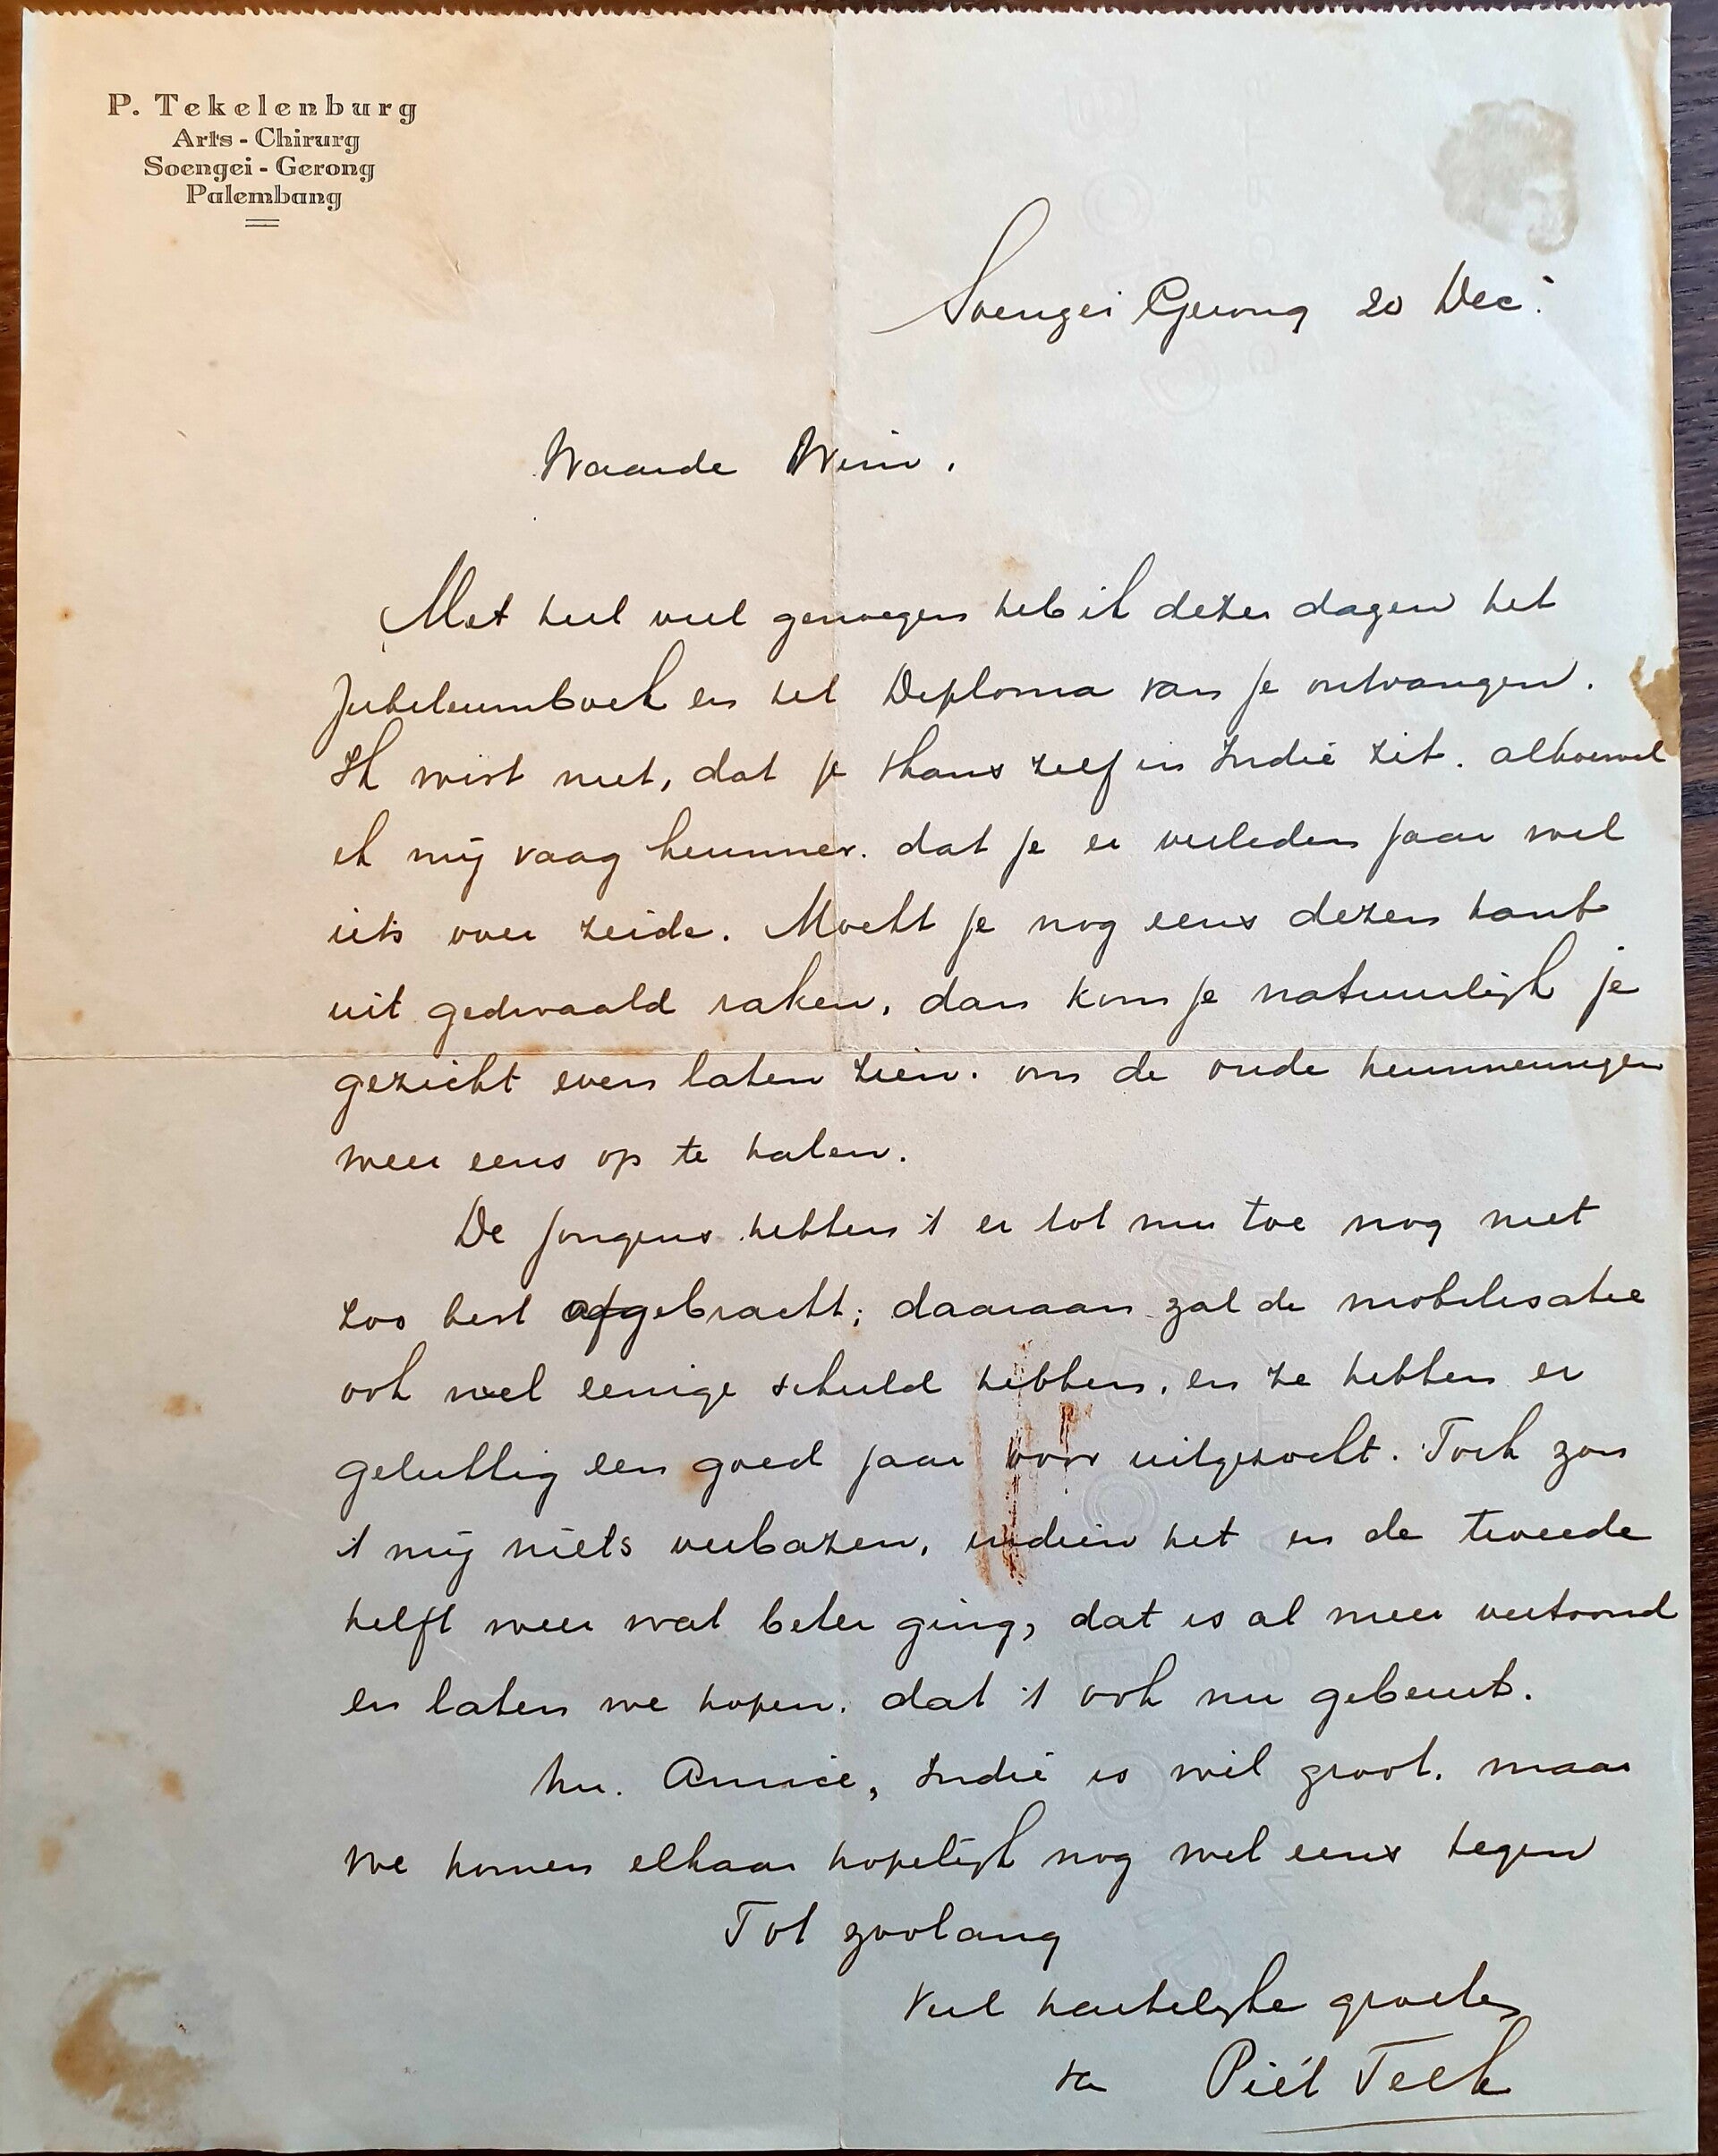 P. Tekelenburg
Arts - Chirurg
Soengei - Gerong
Palembang
Soengei Gerong 20 Dec.
Waarde Wim.
Met heel veel genoegen heb ik dezer dagen het
Jubileumboek en het Diploma van je ontvangen.
Ik wist niet, dat je thans zelf in Indië zit. alhoewel
ik mij vaag herinner. dat je er verleden jaar wel
iets over zeide. Mocht je nog eens dezen kant
uit gedwaald raken, dan kom je natuurlijk je
gezicht even laten zien. om de oude herinneringen
weer eens op te halen.
De jongens hebben 't er tot nu toe nog niet
zoo best afgebracht; daaraan zal de mobilisatie
ook wel eenige schuld hebben, en ze hebben er
gelukkig een goed jaar voor uitgezocht. Toch zou
't mij niets verbazen, indien het in de tweede
helft weer wat beter ging, dat is al meer vertoond
en laten we hopen. dat 't ook nu gebeurt.
Nu. Amice, Indië is wel groot. maar
we komen elkaar hopelijk nog wel eens tegen
Tot zoolang
Veel hartelijke groeten
van Piet Teek